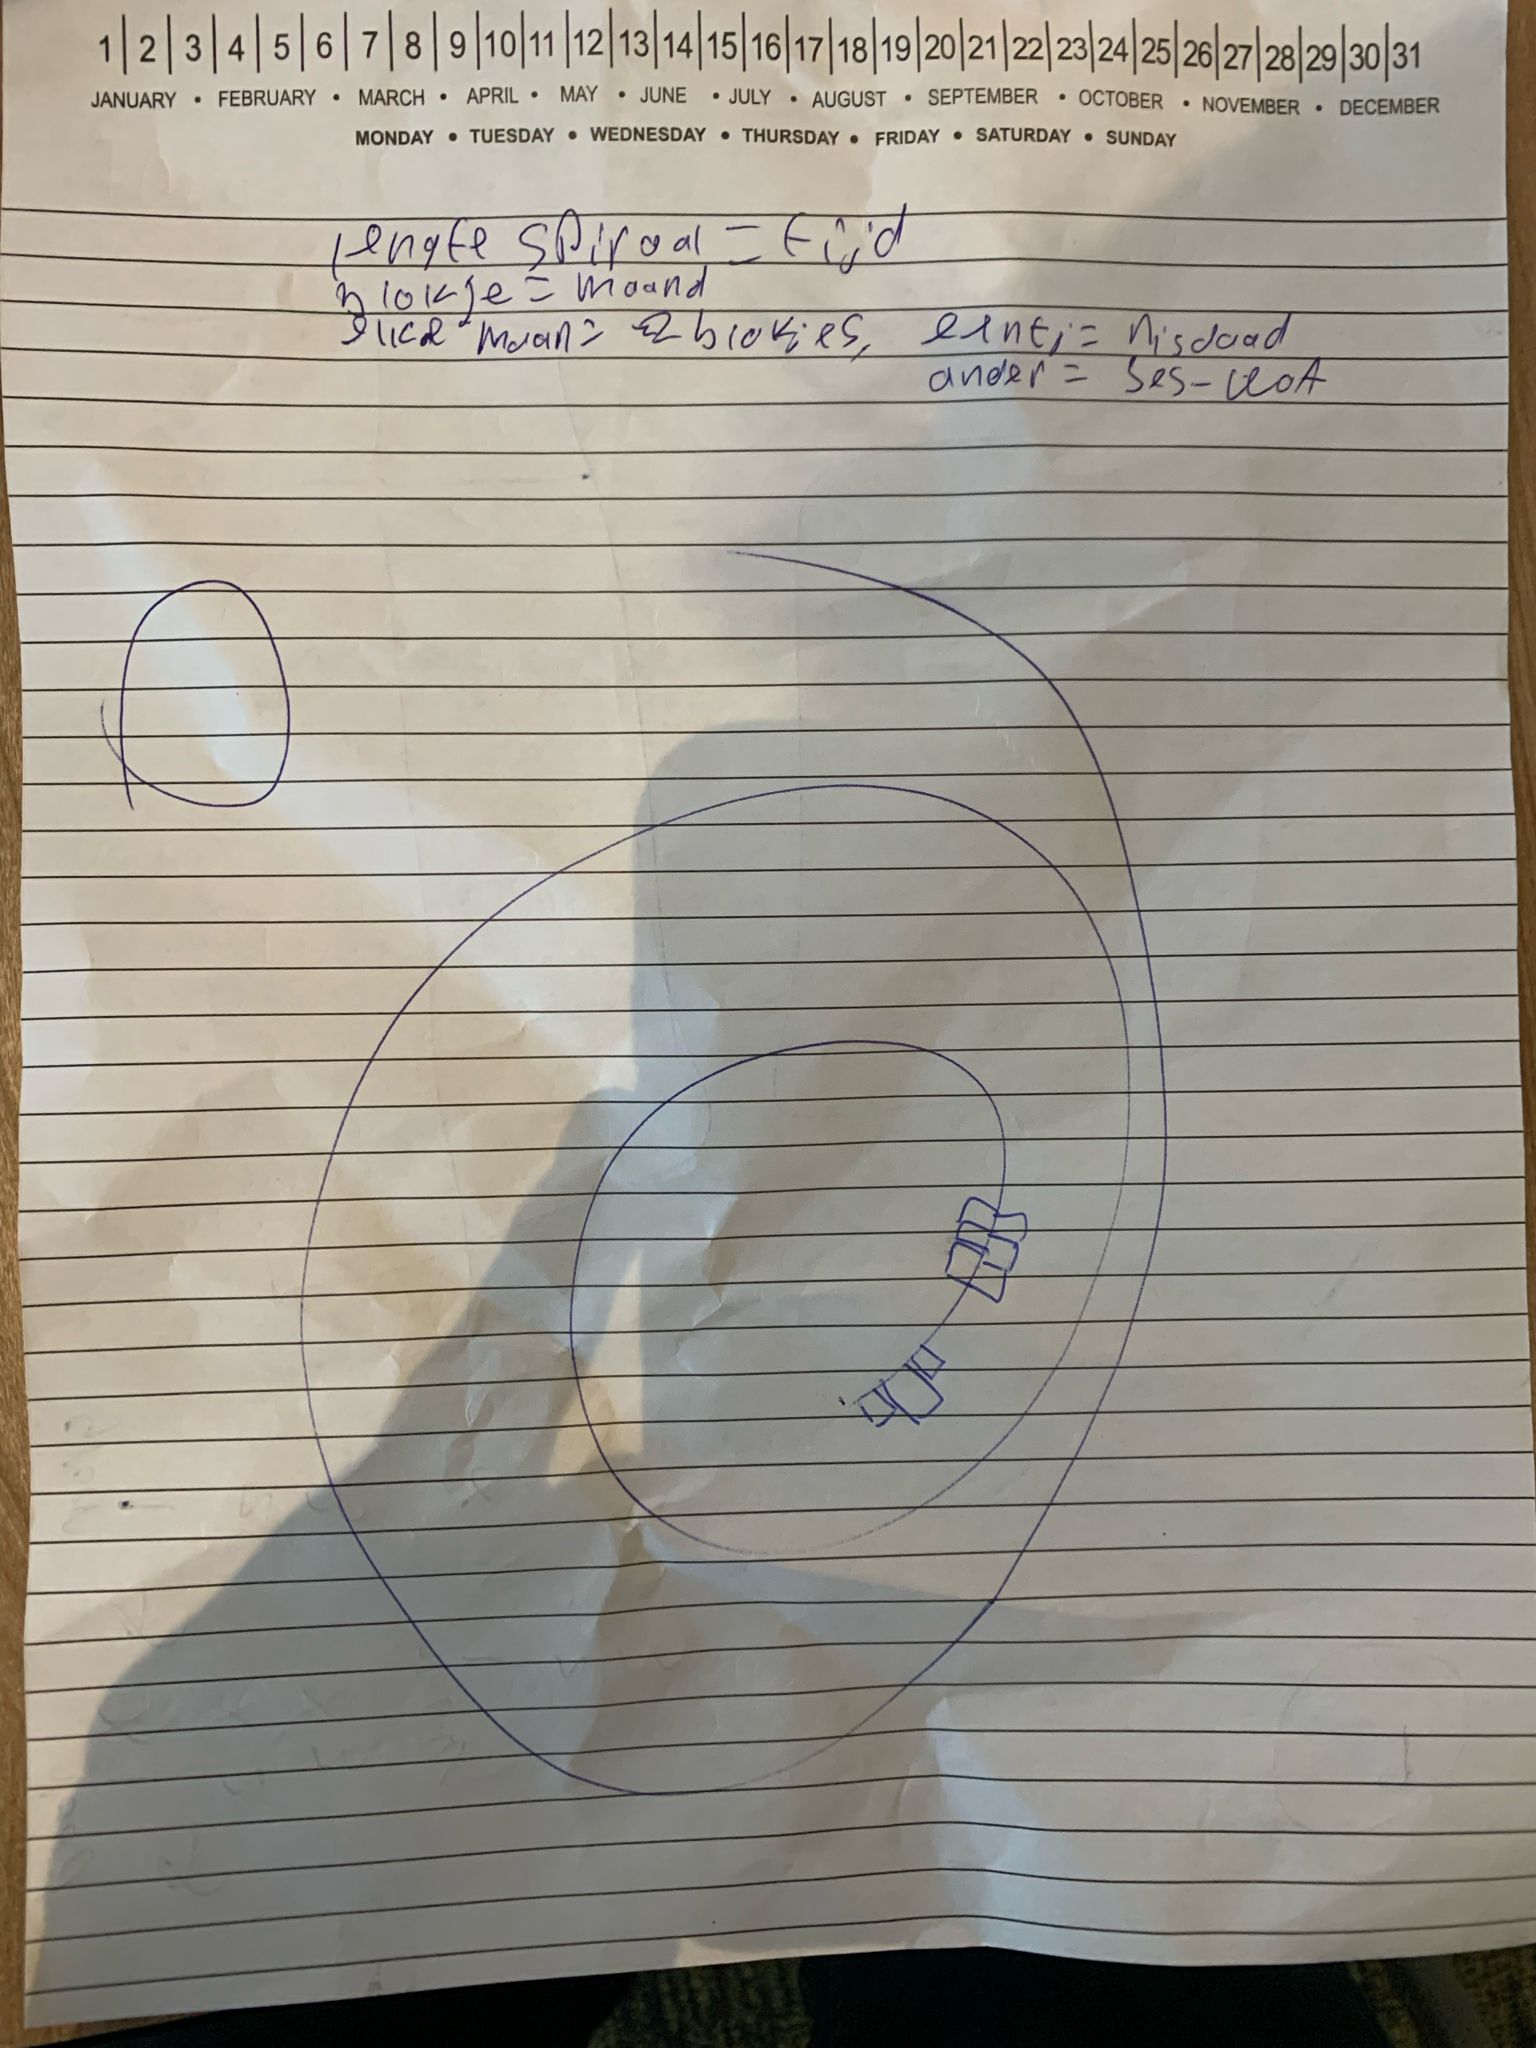 1 | 2 | 3 | 4 | 5 | 6 | 7 | 8 | 9 | 10 | 11 | 12 | 13 | 14 | 15 | 16 | 17 | 18 | 19 | 20 | 21 | 22 | 23 | 24 | 25 | 26 | 27 | 28 | 29 | 30 | 31
JANUARY • FEBRUARY • MARCH • APRIL • MAY • JUNE • JULY • AUGUST • SEPTEMBER • OCTOBER • NOVEMBER • DECEMBER
MONDAY • TUESDAY • WEDNESDAY • THURSDAY • FRIDAY • SATURDAY • SUNDAY
lengte spiraal = tijd
blokje = maand
elke maan = 2 blokjes, eent; = misdaad
ander =